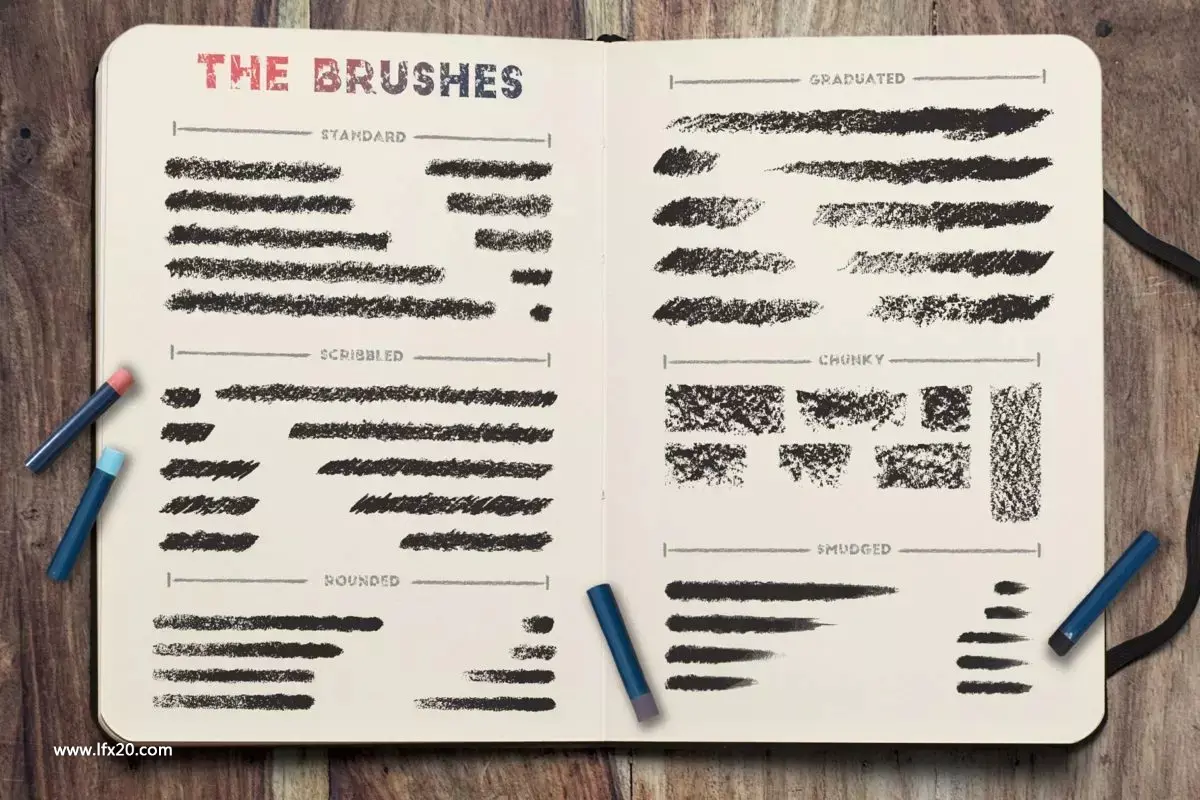 THE BRUSHES
STANDARD
SCRIBBLED
ROUNDED
GRADUATED
CHUNKY
SMUDGED
www.lfx20.com